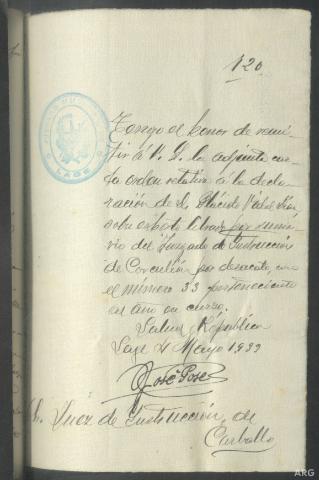 120
Tengo el honor de remi-
tir á V. S. la adjunta car-
ta orden relativa á la decla-
ración de D. Plácido
por suma-
rio del Juzgado de Instrucción
de Corcubión por desacato, con
el número 33 perteneciente
al año en curso.
Salud y República
Lage 4 Mayo 1933
José Pose
Sr. Juez de Instrucción de
Carballo
LAGE
ARG